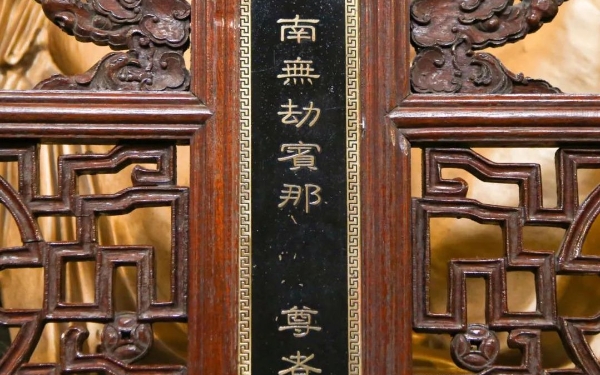 南無劫賓那尊者